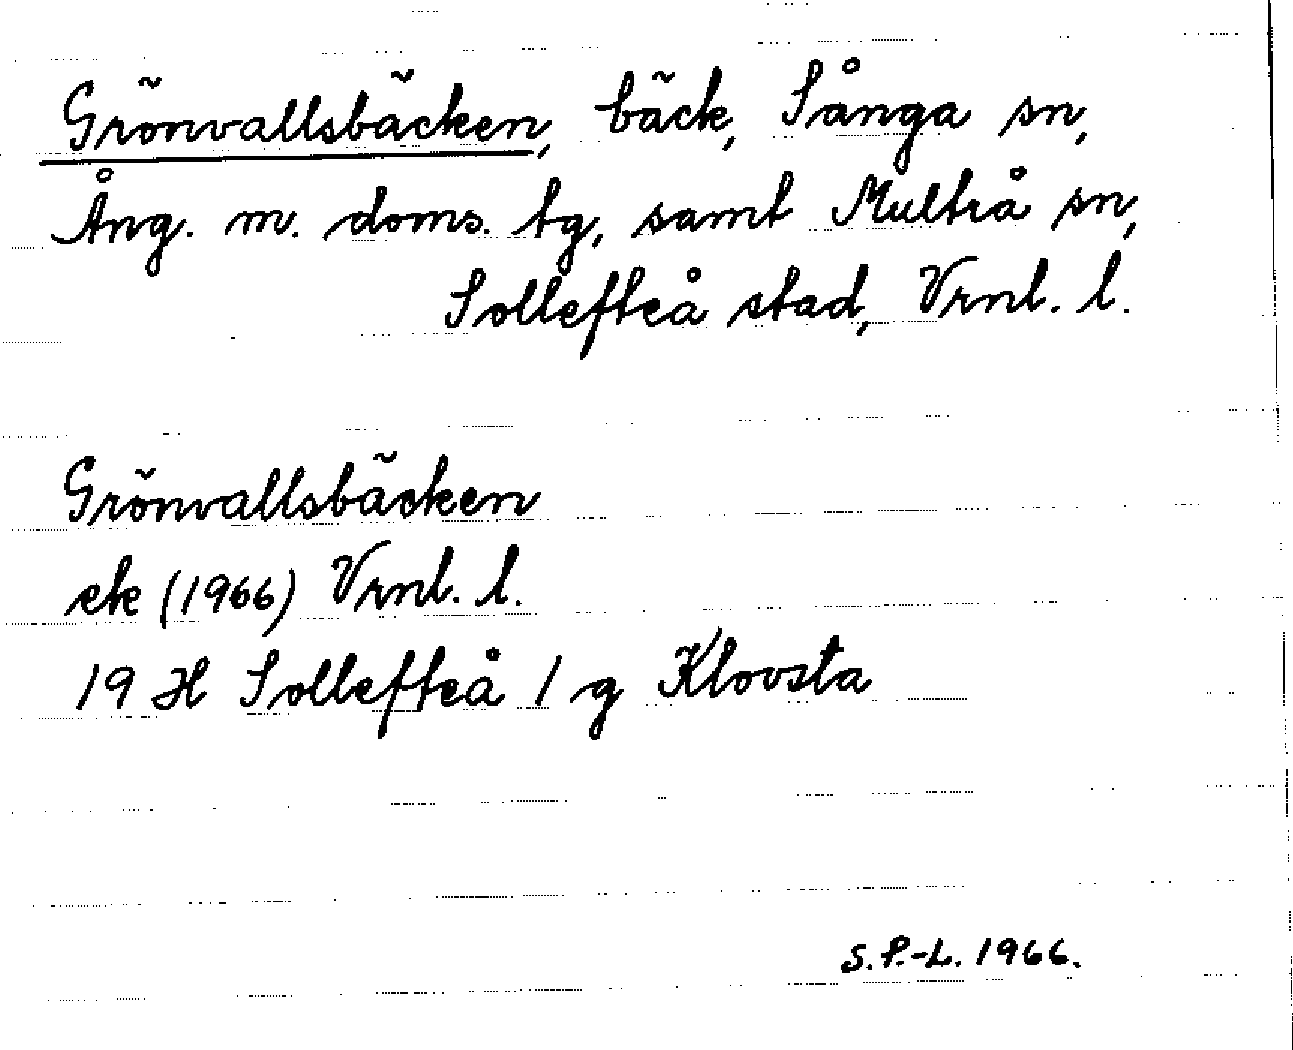 Grönvallsbäcken, bäck, Sånga sn,
Ång. m. doms. tg, samt Multrå sn,
Sollefteå stad, Vrnl. l.
Grönvallsbäcken
ek (1966) Vrnl. l.
19 H Sollefteå 1 g Klovsta
S.P.-L. 1966.